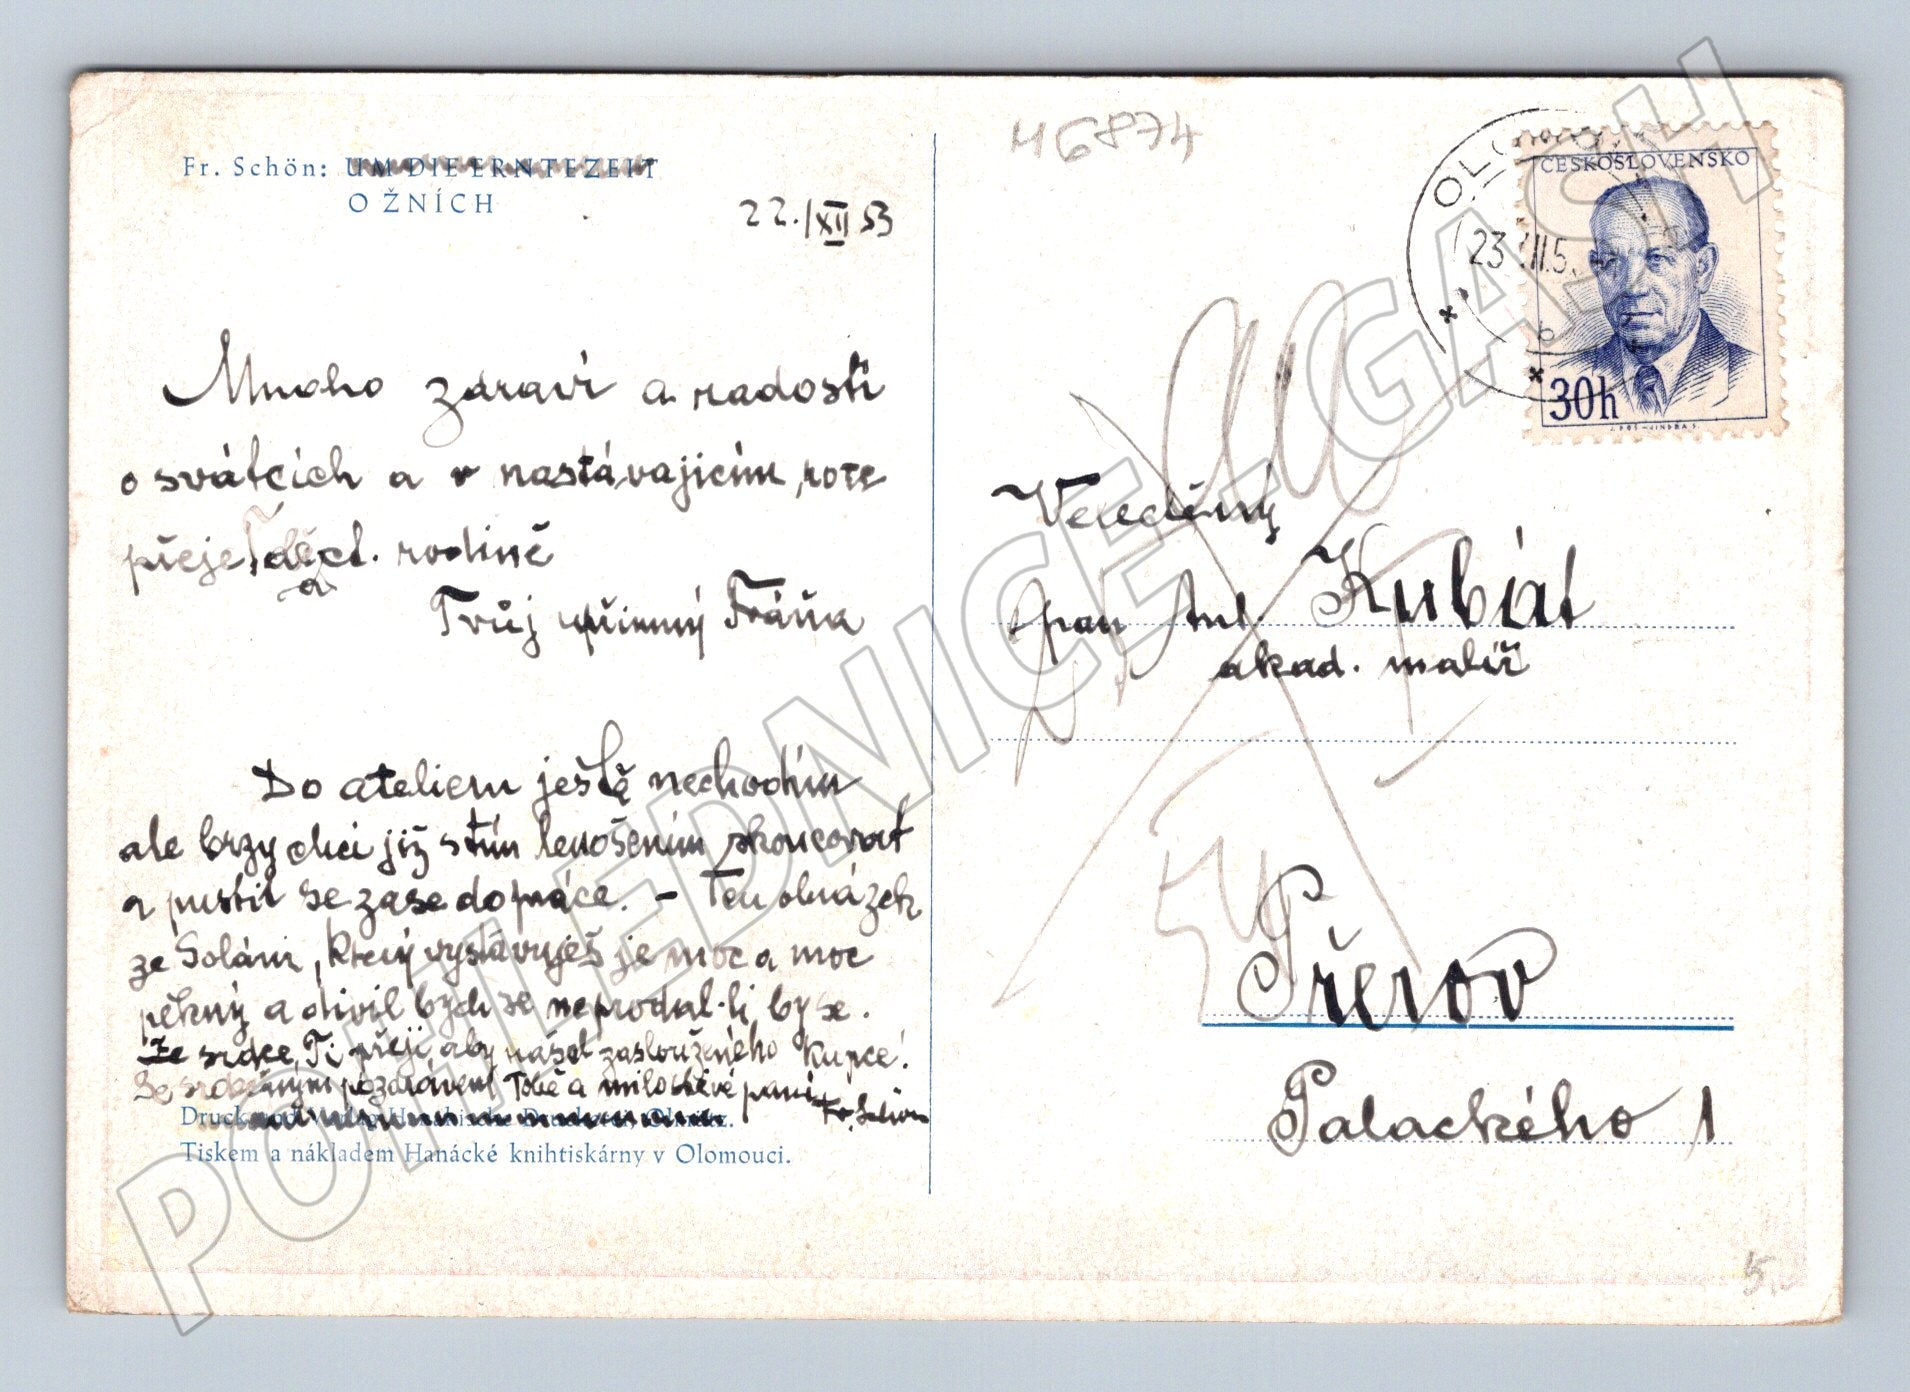 Fr. Schön: UM DIE ERNTEZEIT
O ŽNÍCH
22./XII 53
Mnoho zdraví a radosti
o svátcích a v nastávajícím roce
přeje Tě a ct. rodině
Tvůj upřímný Fráňa
Do atelieru ještě nechodím
ale brzy chci již s tím lenošením skoncovat
a pustit se zase do práce. - Ten obrázek
ze Soláni, který vystavuješ je moc a moc
pěkný a divil bych se neprodal-li by se.
Ze srdce Ti přeji, aby našel zaslouženého kupce!
Se srdečným pozdravem Tobě a milostivé paní Fr. Schön
Tiskem a nákladem Hanácké knihtiskárny v Olomouci.
46874
OLO
23 XII.5
b
ČESKOSLOVENSKO
30h
Vedecěný
pan Ant. Kubát
akad. malíř
Přerov
Palackého 1
5.
POHLEDNICE-GASH